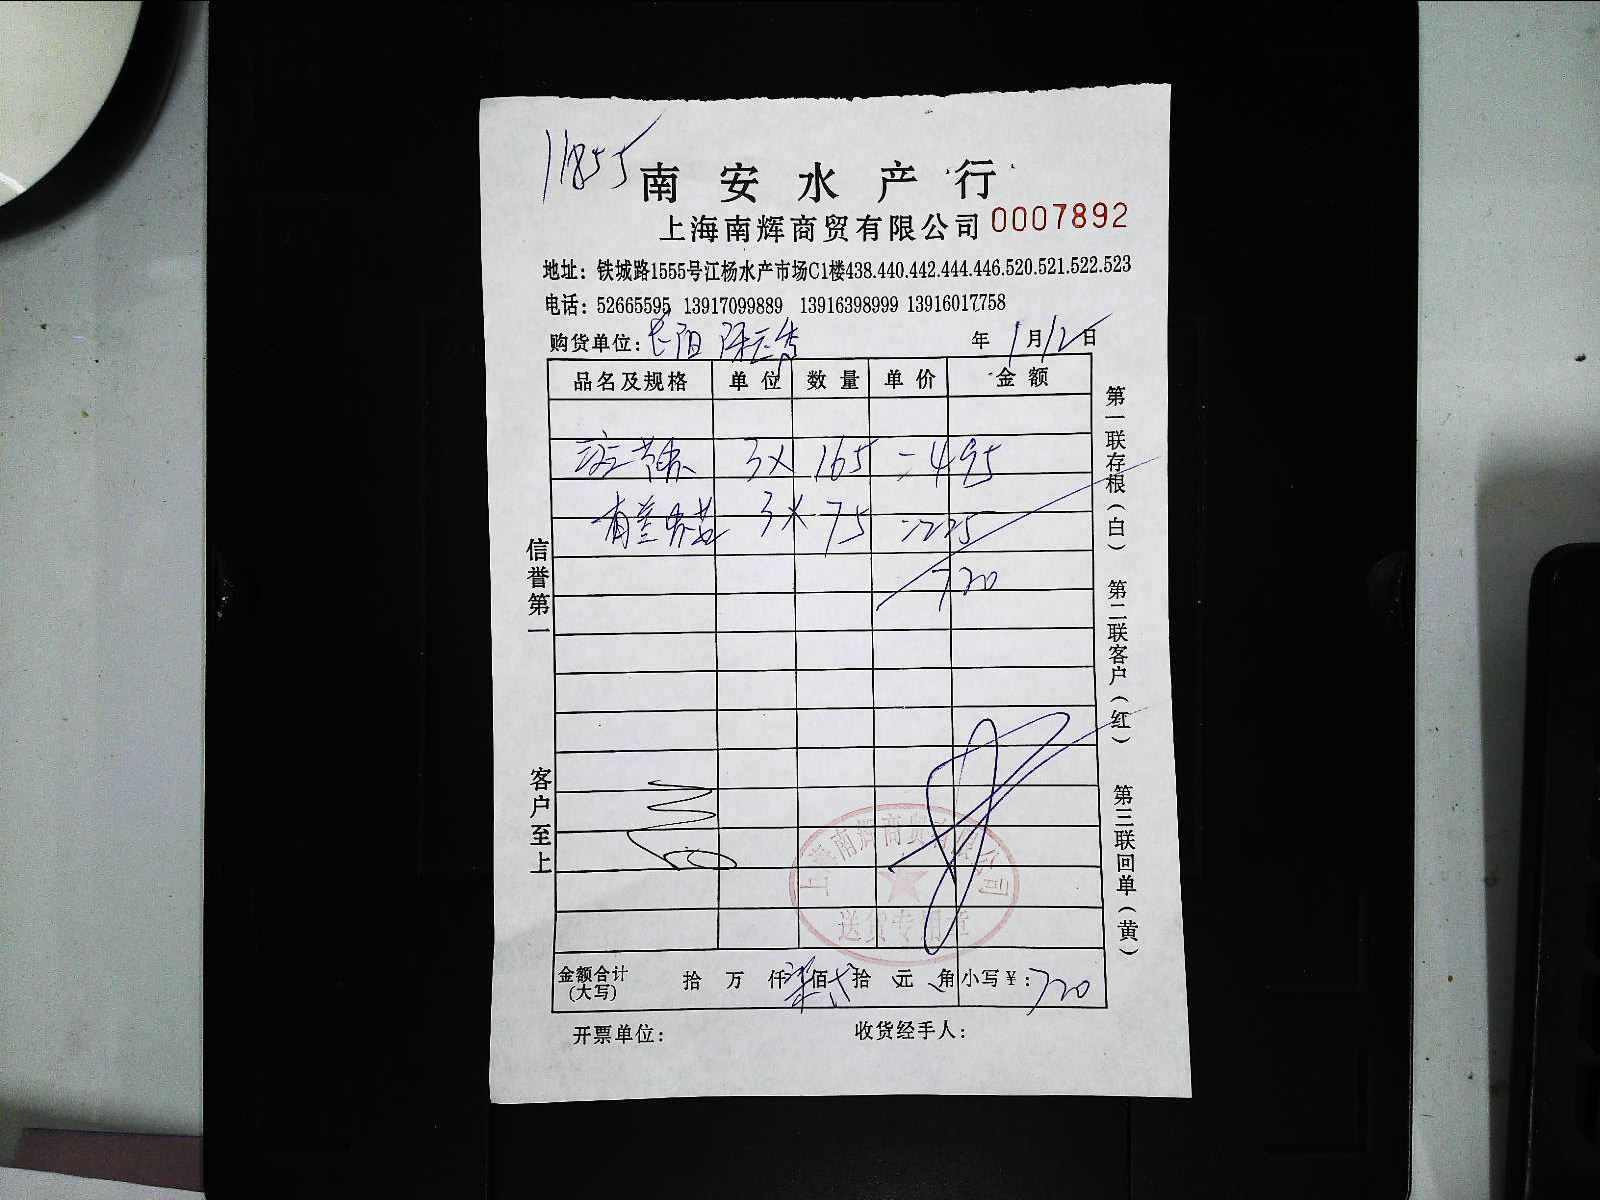 11855
南安水产行
上海南辉商贸有限公司 0007892
地址：铁城路1555号江杨水产市场C1楼438.440.442.444.446.520.521.522.523
电话：52665595 13917099889 13916398999 13916017758
购货单位： 年1月12日
品名及规格 单位 数量 单价 金额
3× 165 =495
3× 75 =225
720
信誉第一
客户至上
第一联存根（白）
第二联客户（红）
第三联回单（黄）
上海南辉商贸有限公司
送货专用章
金额合计（大写） 拾 万 仟 柒佰 贰拾 元 角 小写￥：720
开票单位： 收货经手人：